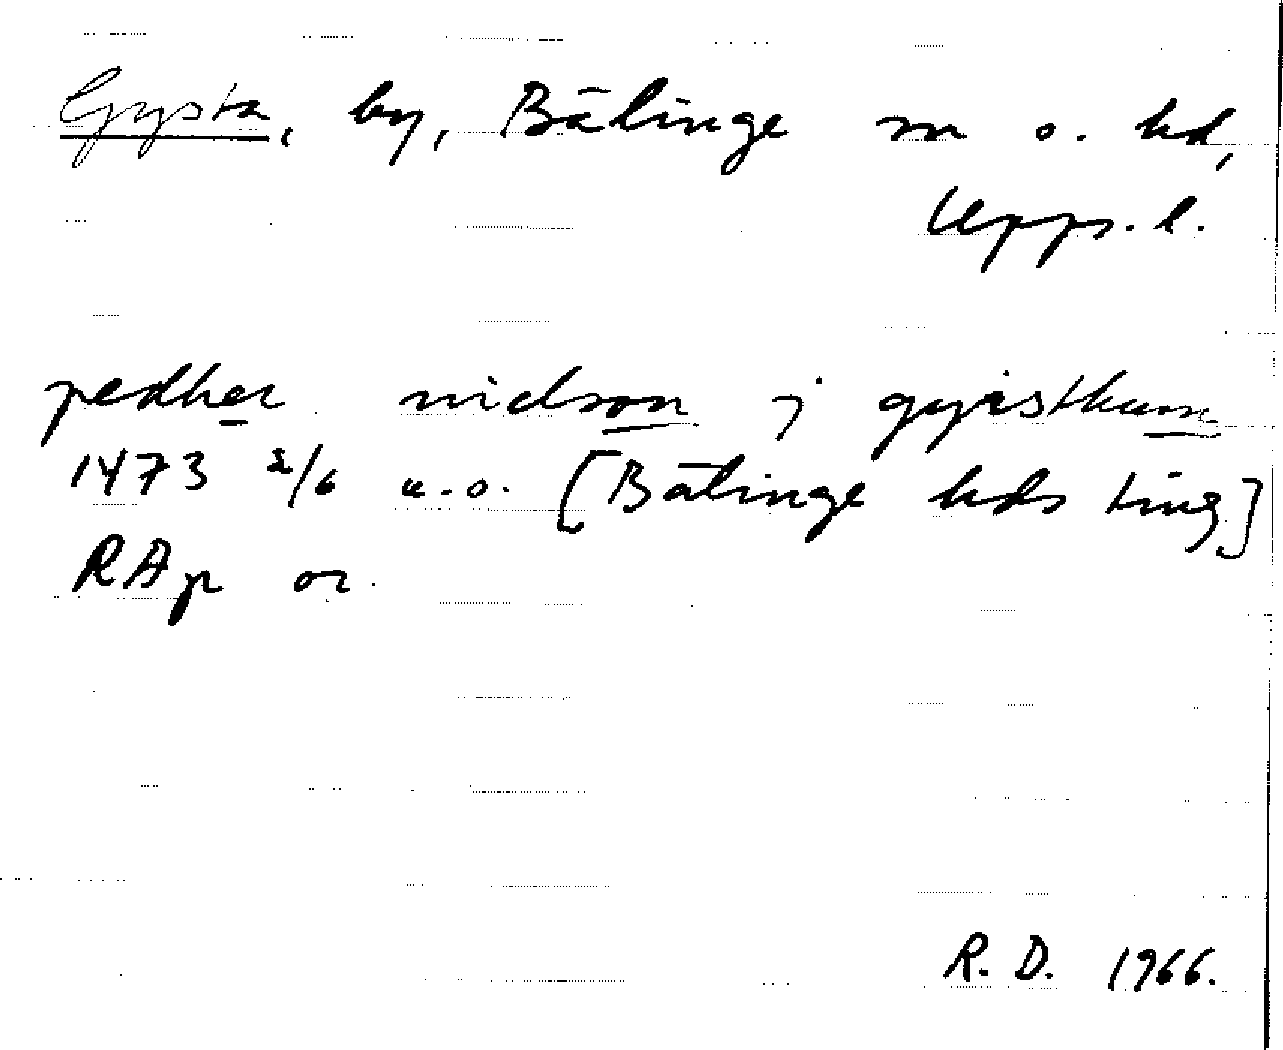 Gysta, by, Bälinge sn o. hd,
Upps. l.
pedher nielson j gyristhum
1473 2/6 u.o. [Bälinge hds ting]
RAp or.
R. D. 1966.